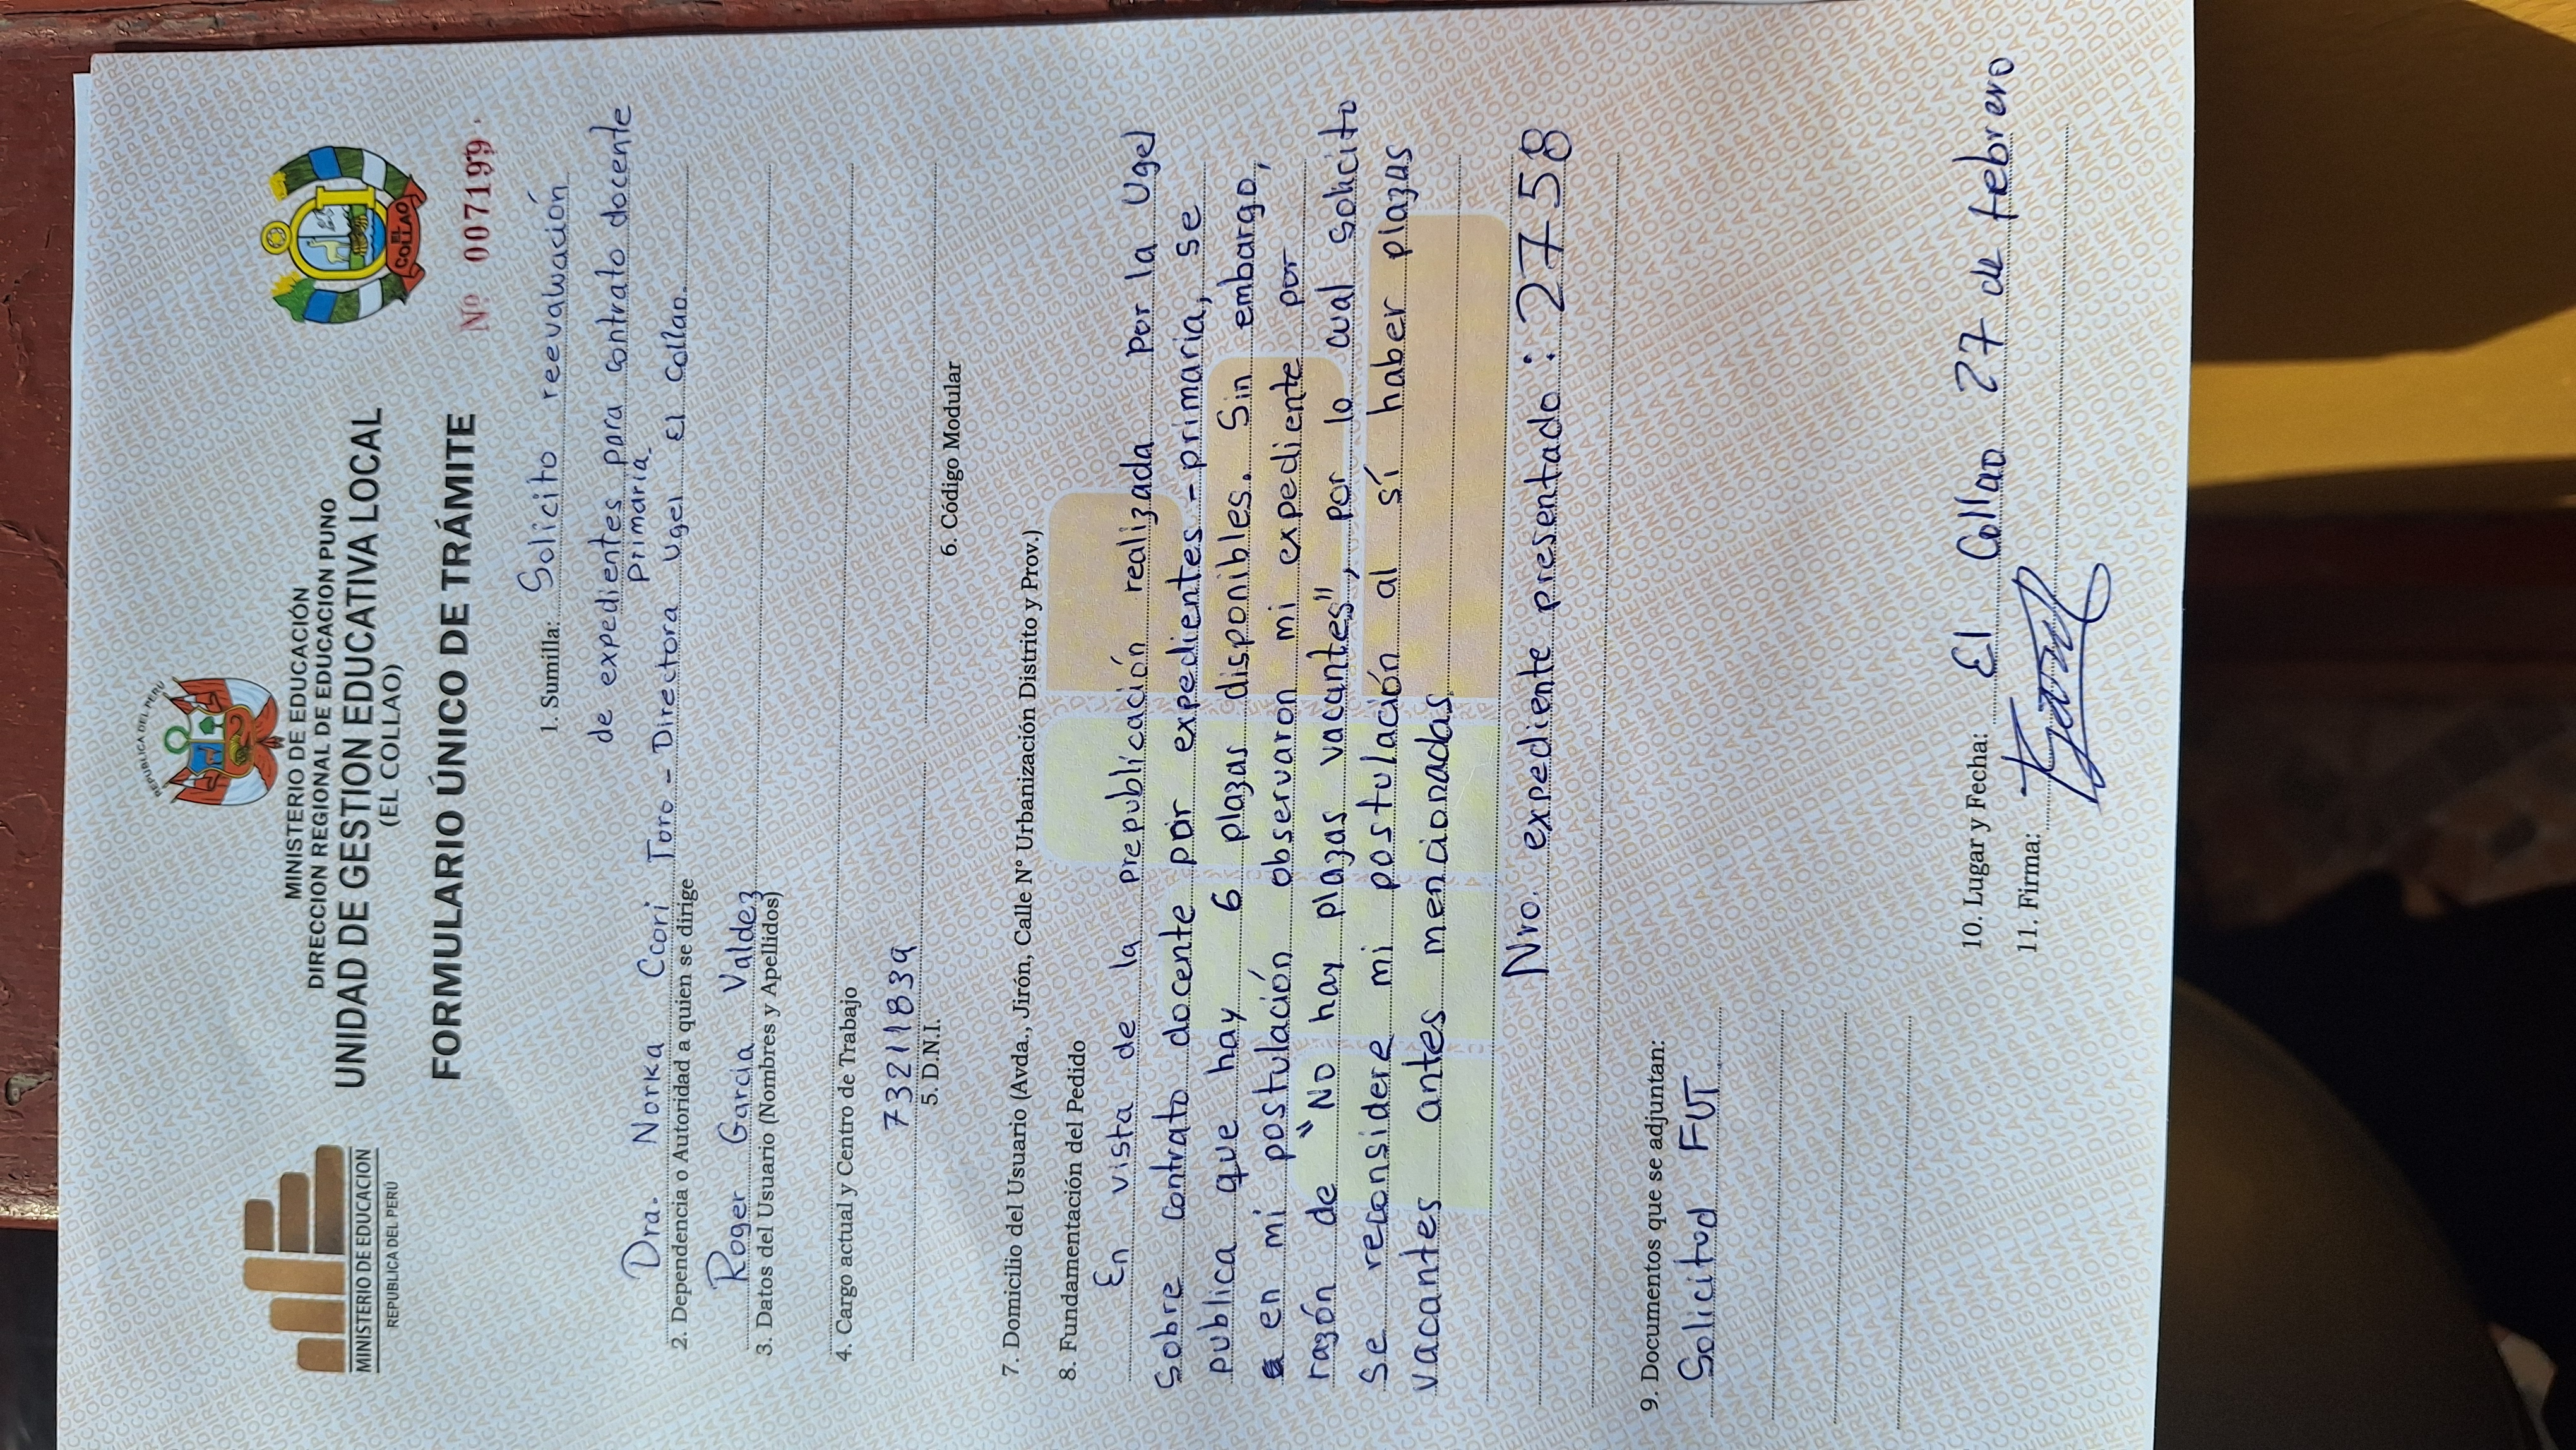 REPUBLICA DEL PERÚ
EL COLLAO
MINISTERIO DE EDUCACION
REPUBLICA DEL PERÚ
MINISTERIO DE EDUCACIÓN
DIRECCION REGIONAL DE EDUCACION PUNO
UNIDAD DE GESTION EDUCATIVA LOCAL
(EL COLLAO)
FORMULARIO ÚNICO DE TRÁMITE
Nº 007199
1. Sumilla: Solicito reevaluación
de expedientes para contrato docente
Primaria
Dra. Norka Ccori Toro - Directora Ugel El Collao.
2. Dependencia o Autoridad a quien se dirige
Roger Garcia Valdez
3. Datos del Usuario (Nombres y Apellidos)
4. Cargo actual y Centro de Trabajo
73211839
5. D.N.I.
6. Código Modular
7. Domicilio del Usuario (Avda., Jirón, Calle Nº Urbanización Distrito y Prov.)
8. Fundamentación del Pedido
En vista de la prepublicación realizada por la Ugel
Sobre contrato docente por expedientes - primaria, se
publica que hay 6 plazas disponibles. Sin embargo,
en mi postulación observaron mi expediente por
razón de "No hay plazas vacantes", por lo cual solicito
se reconsidere mi postulación al sí haber plazas
vacantes antes mencionadas
Nro. expediente presentado: 2758
9. Documentos que se adjuntan:
Solicitud FUT
10. Lugar y Fecha: El Collao 27 de febrero
11. Firma: